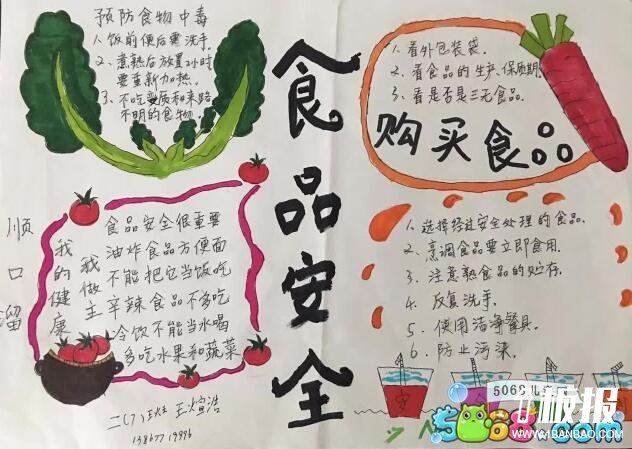 预防食物中毒
1、饭前便后要洗手。
2、煮熟后放置2小时
要重新加热。
3、不吃变质和来路
不明的食物。
食品安全
1、看外包装袋。
2、看食品的生产、保质期。
3、看是否是三无食品。
购买食品
顺口溜
我的健康
我做主
食品安全很重要
油炸食品方便面
不能把它当饭吃
辛辣食品不多吃
冷饮不能当水喝
多吃水果和蔬菜
二(7)班 王煊浩
1、选择经过安全处理的食品。
2、烹调食品要立即食用。
3、注意熟食品的贮存。
4、反复洗手。
5、使用洁净餐具。
6、防止污染。
安
板报
WWW.1BANBAO.COM